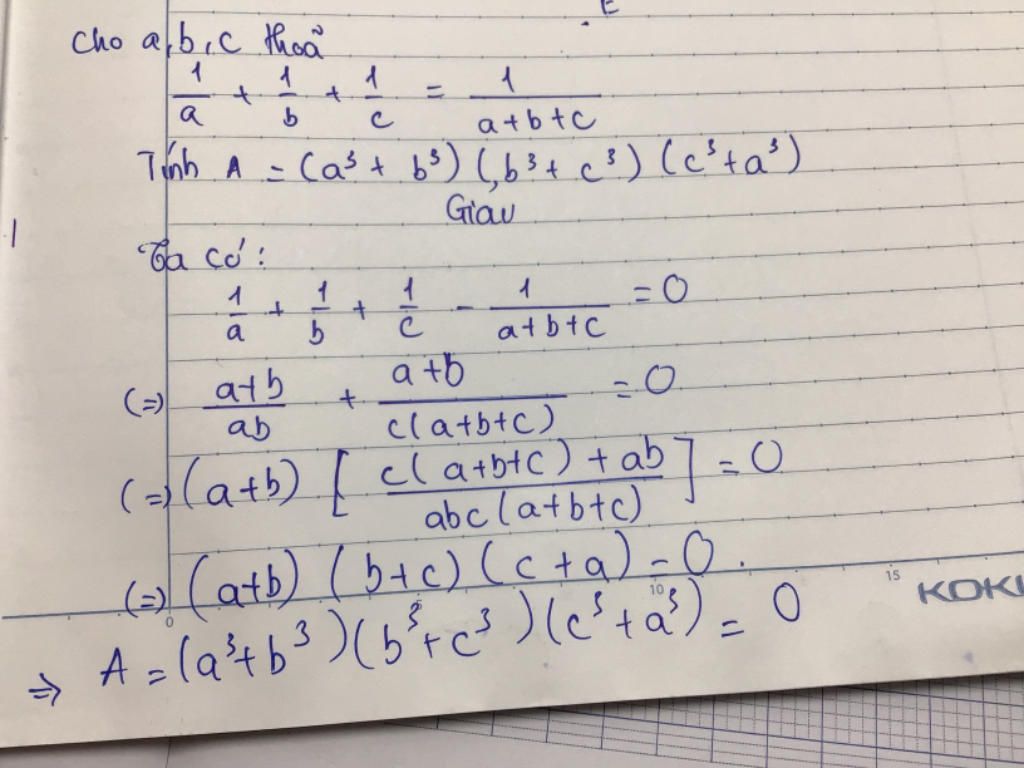 Cho a, b, c thoả
1/a + 1/b + 1/c = 1/(a+b+c)
Tính A = (a³ + b³) (b³ + c³) (c³ + a³)
Giải
Ta có:
1/a + 1/b + 1/c - 1/(a+b+c) = 0
(=) (a+b)/ab + (a+b)/(c(a+b+c)) = 0
(=) (a+b) [ (c(a+b+c) + ab)/(abc(a+b+c)) ] = 0
(=) (a+b) (b+c) (c+a) = 0.
0 5 10 15 KOKU
=> A = (a³+b³)(b³+c³)(c³+a³) = 0